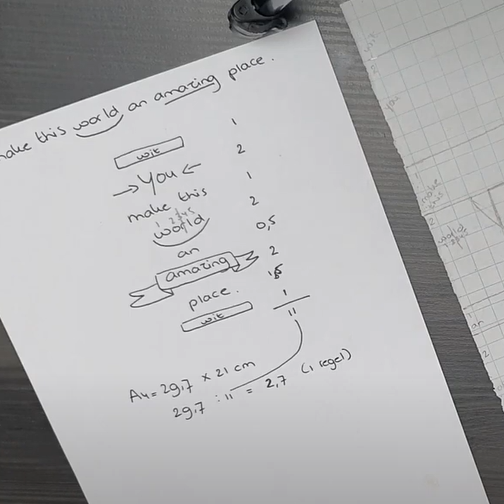 make this world an amazing place.
wit 1
→ You ← 2
make this 1
1 2 3 4 5
world 2
an 0,5
amazing 2
place. 1,5
wit 1
11
A4 = 29,7 x 21 cm
29,7 : 11 = 2,7 (1 regel)
wit
make
this
world
an